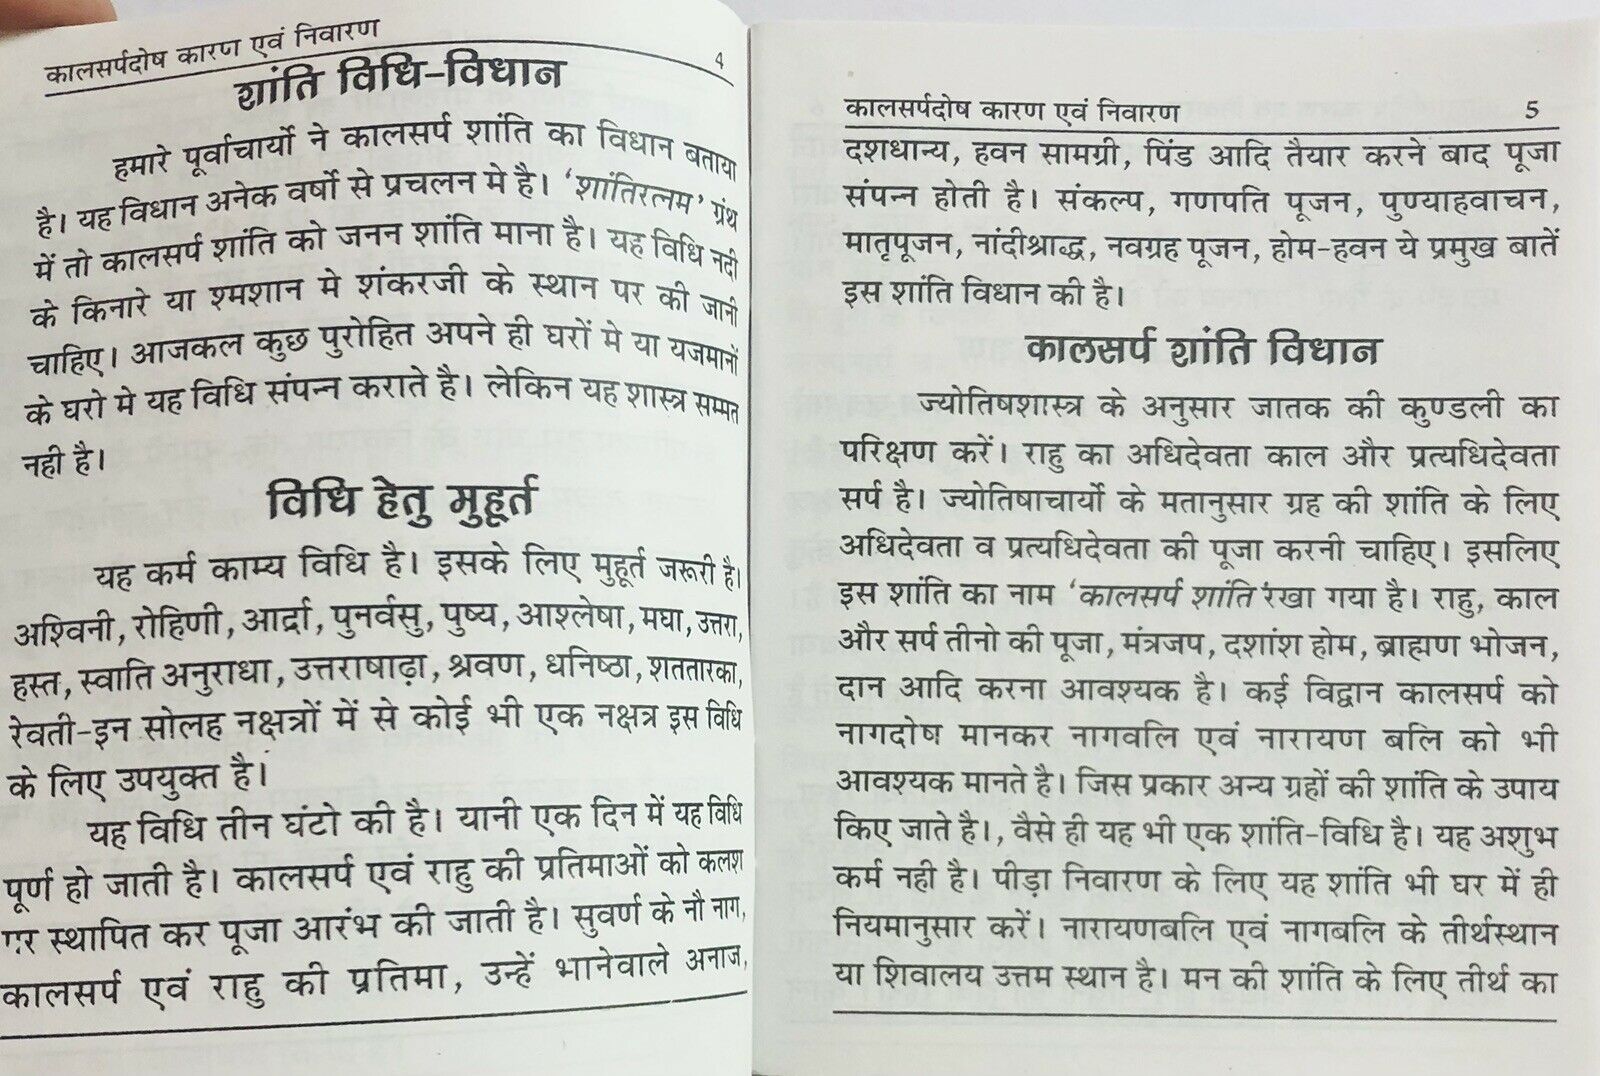 कालसर्पदोष कारण एवं निवारण 4
शांति विधि-विधान
हमारे पूर्वाचार्यो ने कालसर्प शांति का विधान बताया
है। यह विधान अनेक वर्षो से प्रचलन मे है। 'शांतिरत्नम' ग्रंथ
में तो कालसर्प शांति को जनन शांति माना है। यह विधि नदी
के किनारे या श्मशान मे शंकरजी के स्थान पर की जानी
चाहिए। आजकल कुछ पुरोहित अपने ही घरों मे या यजमानों
के घरो मे यह विधि संपन्न कराते है। लेकिन यह शास्त्र सम्मत
नही है।
विधि हेतु मुहूर्त
यह कर्म काम्य विधि है। इसके लिए मुहूर्त जरूरी है।
अश्विनी, रोहिणी, आर्द्रा, पुनर्वसु, पुष्य, आश्लेषा, मघा, उत्तरा,
हस्त, स्वाति अनुराधा, उत्तराषाढ़ा, श्रवण, धनिष्ठा, शततारका,
रेवती-इन सोलह नक्षत्रों में से कोई भी एक नक्षत्र इस विधि
के लिए उपयुक्त है।
यह विधि तीन घंटो की है। यानी एक दिन में यह विधि
पूर्ण हो जाती है। कालसर्प एवं राहु की प्रतिमाओं को कलश
पर स्थापित कर पूजा आरंभ की जाती है। सुवर्ण के नौ नाग,
कालसर्प एवं राहु की प्रतिमा, उन्हें भानेवाले अनाज,
कालसर्पदोष कारण एवं निवारण 5
दशधान्य, हवन सामग्री, पिंड आदि तैयार करने बाद पूजा
संपन्न होती है। संकल्प, गणपति पूजन, पुण्याहवाचन,
मातृपूजन, नांदीश्राद्ध, नवग्रह पूजन, होम-हवन ये प्रमुख बातें
इस शांति विधान की है।
कालसर्प शांति विधान
ज्योतिषशास्त्र के अनुसार जातक की कुण्डली का
परिक्षण करें। राहु का अधिदेवता काल और प्रत्यधिदेवता
सर्प है। ज्योतिषाचार्यो के मतानुसार ग्रह की शांति के लिए
अधिदेवता व प्रत्यधिदेवता की पूजा करनी चाहिए। इसलिए
इस शांति का नाम 'कालसर्प शांति' रखा गया है। राहु, काल
और सर्प तीनो की पूजा, मंत्रजप, दशांश होम, ब्राह्मण भोजन,
दान आदि करना आवश्यक है। कई विद्वान कालसर्प को
नागदोष मानकर नागवलि एवं नारायण बलि को भी
आवश्यक मानते है। जिस प्रकार अन्य ग्रहों की शांति के उपाय
किए जाते है।, वैसे ही यह भी एक शांति-विधि है। यह अशुभ
कर्म नही है। पीड़ा निवारण के लिए यह शांति भी घर में ही
नियमानुसार करें। नारायणबलि एवं नागबलि के तीर्थस्थान
या शिवालय उत्तम स्थान है। मन की शांति के लिए तीर्थ का